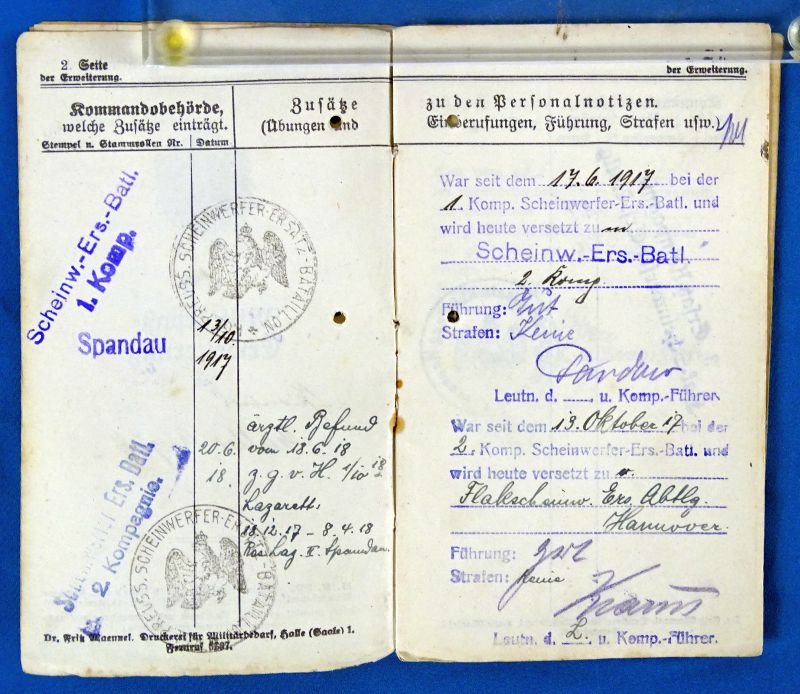 2. Seite
der Erweiterung.
Kommandobehörde,
welche Zusätze einträgt.
Stempel u. Stammrollen Nr.
Datum
Zusätze
(Übungen und
Scheinw.-Ers.-Batl.
1. Komp.
Spandau
PREUSS. SCHEINWERFER-ERSATZ-BATAILLON
13/10.
1917
20.6.
18.
ärztl. Befund
vom 18.6.18
z. g. v. H. 1/10 18
Lazarett:
18.12.17 – 8.4.18
Res. Laz. II. Spandau.
Ers. Batl.
2. Kompagnie.
PREUSS. SCHEINWERFER-ERSATZ-BATAILLON
Dr. Fritz Maennel. Druckerei für Militärbedarf, Halle (Saale) 1.
Fernruf 5207.
der Erweiterung.
zu den Personalnotizen.
Einberufungen, Führung, Strafen usw.)
War seit dem 17.6.1917 bei der
1. Komp. Scheinwerfer-Ers.-Batl. und
wird heute versetzt zu
Scheinw.-Ers.-Batl.
2. Komp.
Führung: Gut
Strafen: Keine
Leutn. d. u. Komp.-Führer.
War seit dem 13. Oktober 17 bei der
2. Komp. Scheinwerfer-Ers.-Batl. und
wird heute versetzt zu
Flakscheinw. Ers. Abtlg.
Hannover.
Führung: gut
Strafen: keine
Leutn. d. L. u. Komp.-Führer.